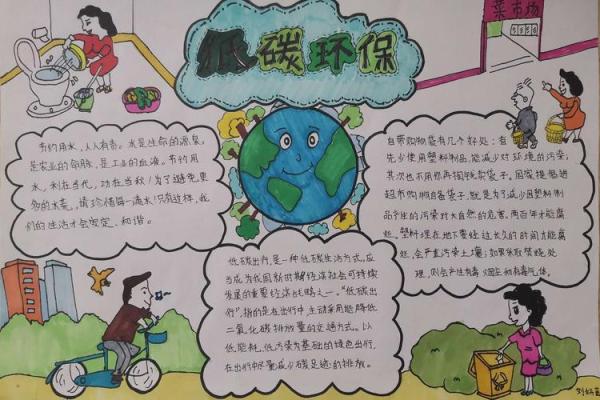 低碳环保
菜市场
节约用水，人人有责。水是生命的源泉，
是农业的命脉，是工业的血液。节约用
水，利在当代，功在千秋！为了避免更
多的水荒，请珍惜每一滴水！只有这样，我
们的生活才会安定、和谐。
自带购物袋有几个好处：首
先少使用塑料制品，能减少对环境的污染，
其次也不用你再掏钱买袋子。国家提倡进
超市购物自备袋子，就是为了减少因塑料制
品产生的污染对大自然的危害，两百年才能腐
烂。塑料埋在地下要经过长久的时间才能腐
烂，会严重污染土壤；如果采取焚烧处
理，则会产生有毒烟尘和有毒气体。
低碳出行，是一种低碳生活方式，应
当成为我国新时期经济社会可持续
发展的重要经济战略之一。“低碳出
行”，指的是在出行中，主动采用能降低
二氧化碳排放量的交通方式。以
低能耗、低污染为基础的绿色出行，
在出行中尽量减少碳足迹的排放。